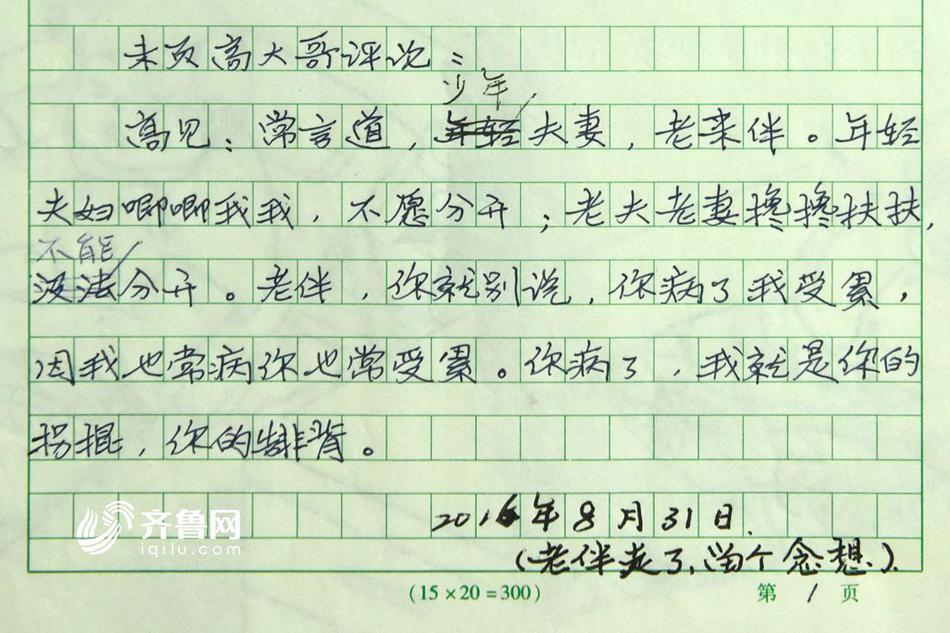 末页高大哥评说：
少年
高见：常言道，年轻夫妻，老来伴。年轻
夫妇唧唧我我，不愿分开；老夫老妻搀搀扶扶，
不能
没法分开。老伴，你就别说，你病了我受累，
因我也常病你也常受累。你病了，我就是你的
拐棍，你的靠背。
2016年8月31日.
(老伴走了,留个念想).
齐鲁网
iqilu.com
(15×20=300)
第 1 页